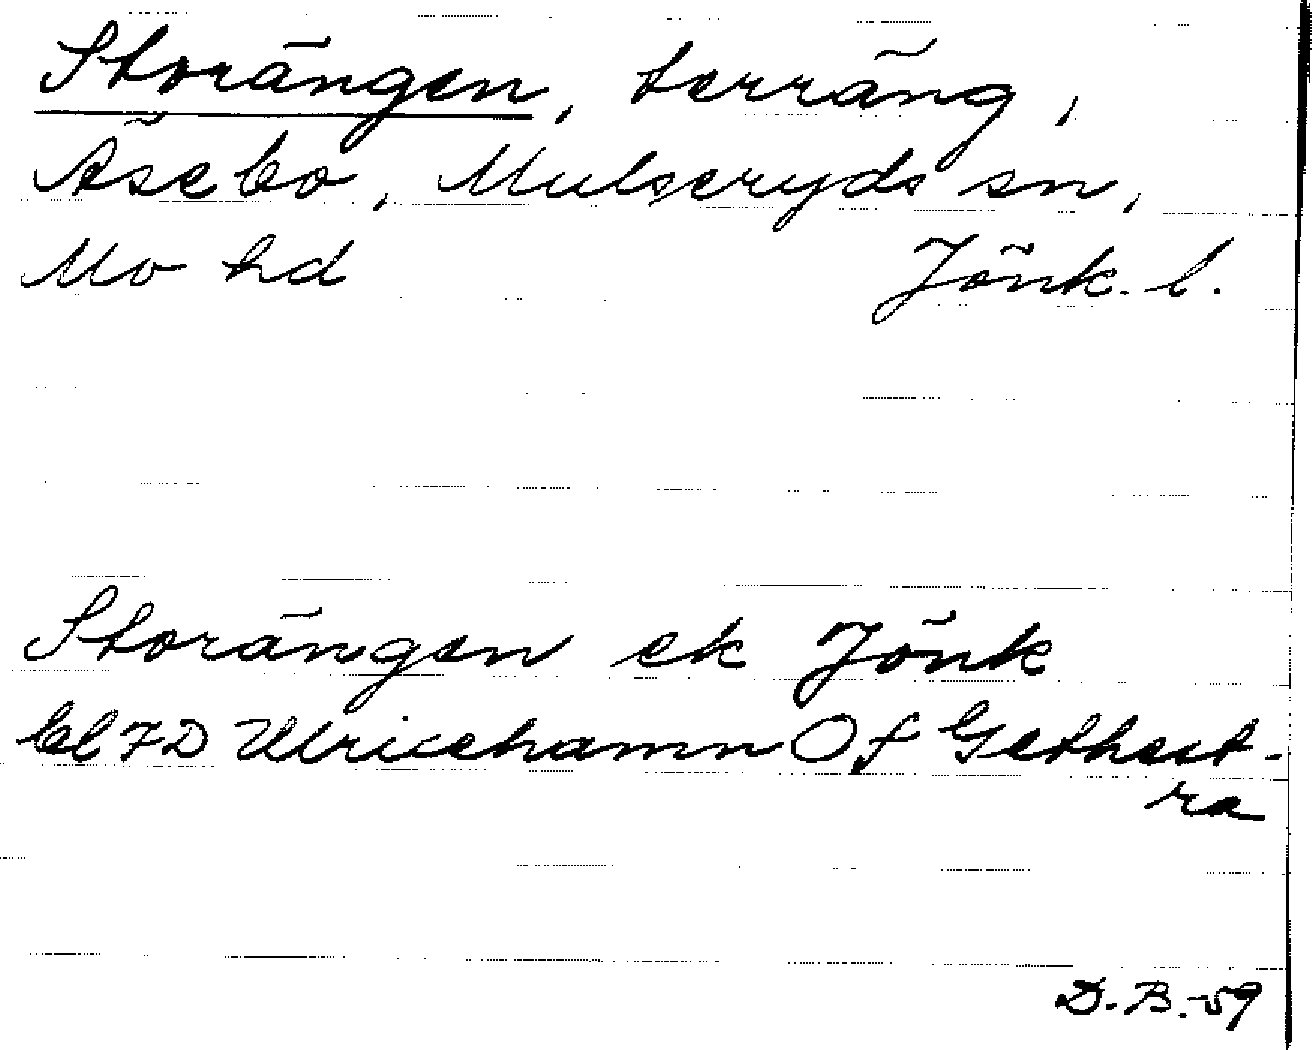 Storängen, terräng,
Äsebo, Mulseryds sn,
Mo hd Jönk. l.
Storängen ek Jönk
bl 7D Ulricehamn Of Gethest-
ra
D. B. -59